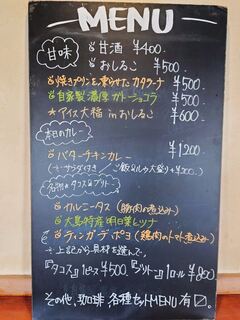 MENU
甘味
甘酒 ¥400.
おしるこ ¥500.
焼きプリンを凍らせたカタラーナ ¥500.
自家製濃厚ガトーショコラ ¥500.
★アイス大福 in おしるこ ¥600
本日のカレー
バターチキンカレー ¥1200
(サラダ付き
名物!! タコス&ブリトー
カルニータス (豚肉の煮込み)
大島特産明日葉とツナ
ティンガデポヨ (鶏肉のトマト煮込み)
上記から具材を選んで、
『タコス』1ピース ¥500. 『ブリトー』1ロール ¥800
その他、珈琲 各種セットMENU有